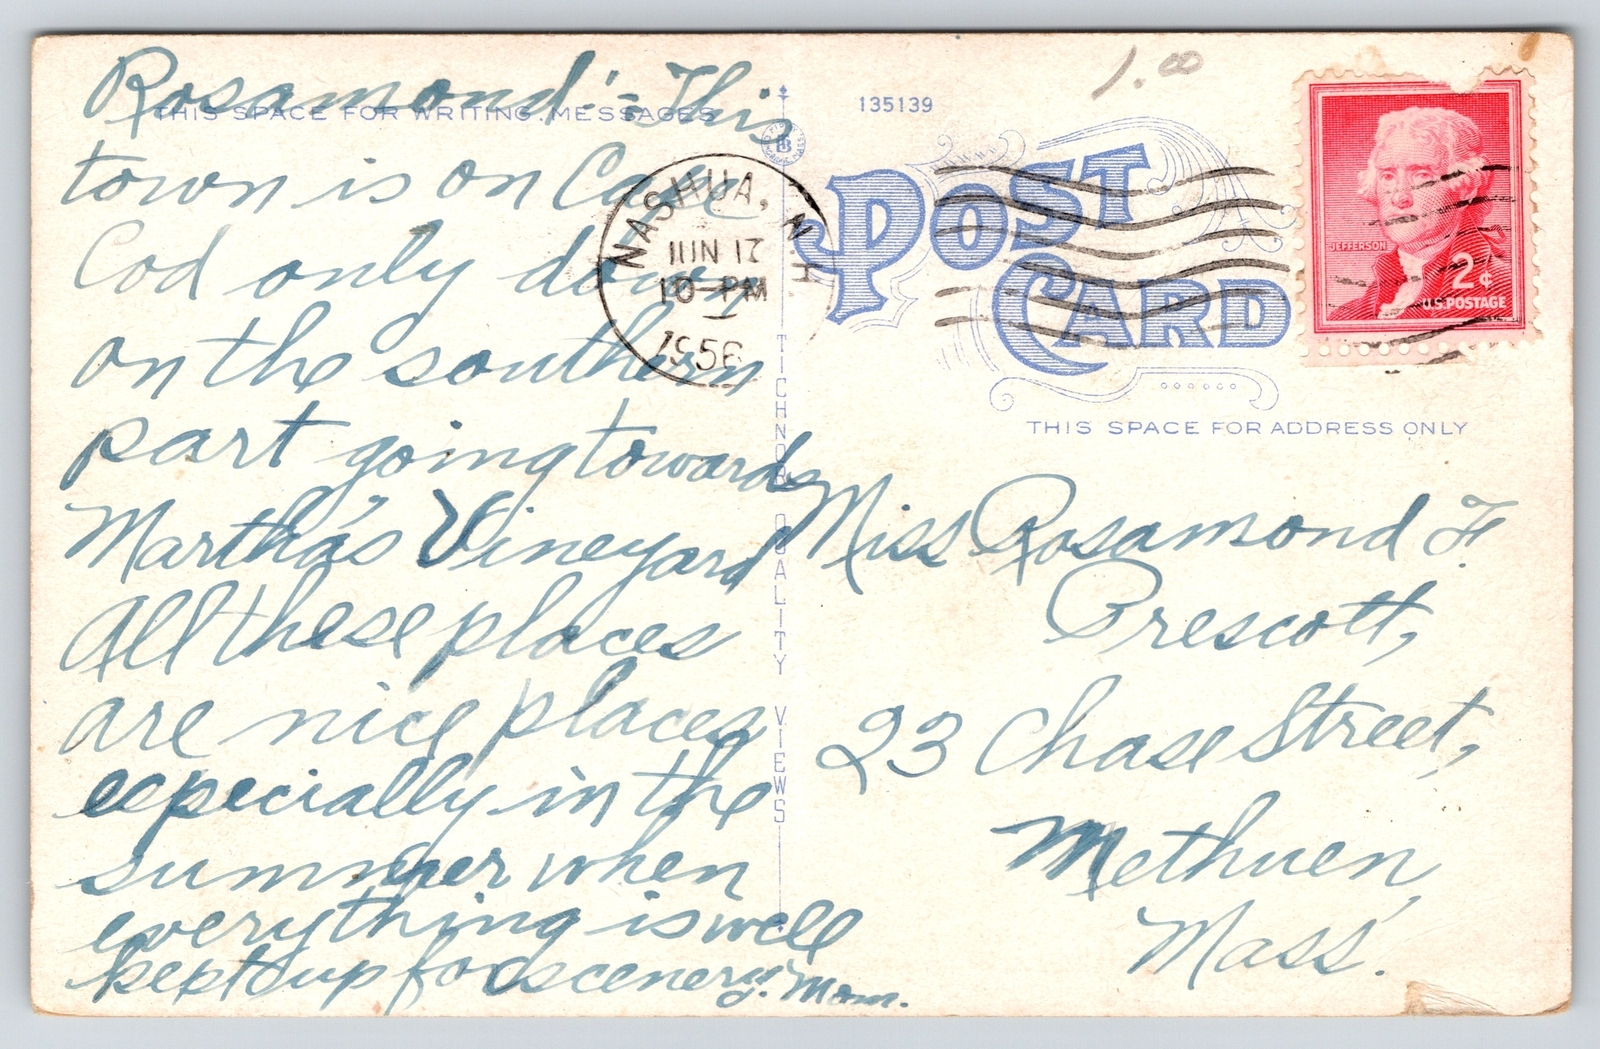 1.00
THIS SPACE FOR WRITING MESSAGES
Rosamond:- This
town is on Cape
Cod only down
on the southern
part going towards
Martha's Vineyard
All these places
are nice places
especially in the
summer when
everything is well
kept up for scenery. Mom.
NASHUA, N.H
JUN 17
10-PM
1956
135139
POST
CARD
JEFFERSON
2¢
U.S. POSTAGE
THIS SPACE FOR ADDRESS ONLY
TICHNOR QUALITY VIEWS
Miss Rosamond F.
Prescott,
23 Chase Street,
Methuen,
Mass.